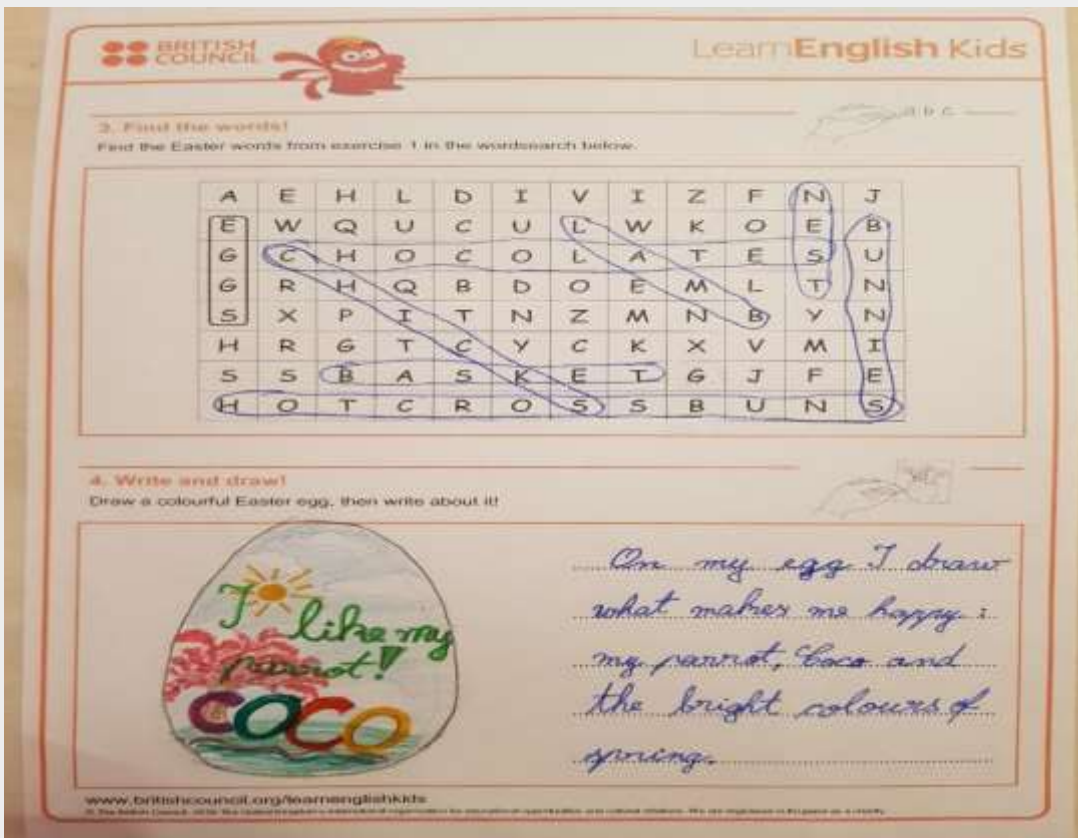 BRITISH
COUNCIL
LearnEnglish Kids
a b c
3. Find the words!
Find the Easter words from exercise 1 in the wordsearch below.
A E H L D I V I Z F N J
E W Q U C U L W K O E B
G C H O C O L A T E S U
G R H Q B D O E M L T N
S X P I T N Z M N B Y N
H R G T C Y C K X V M I
S S B A S K E T G J F E
H O T C R O S S B U N S
4. Write and draw!
Draw a colourful Easter egg, then write about it!
I like my
parrot!
COCO
On my egg I draw
what makes me happy:
my parrot, Coco and
the bright colours of
spring.
www.britishcouncil.org/learnenglishkids